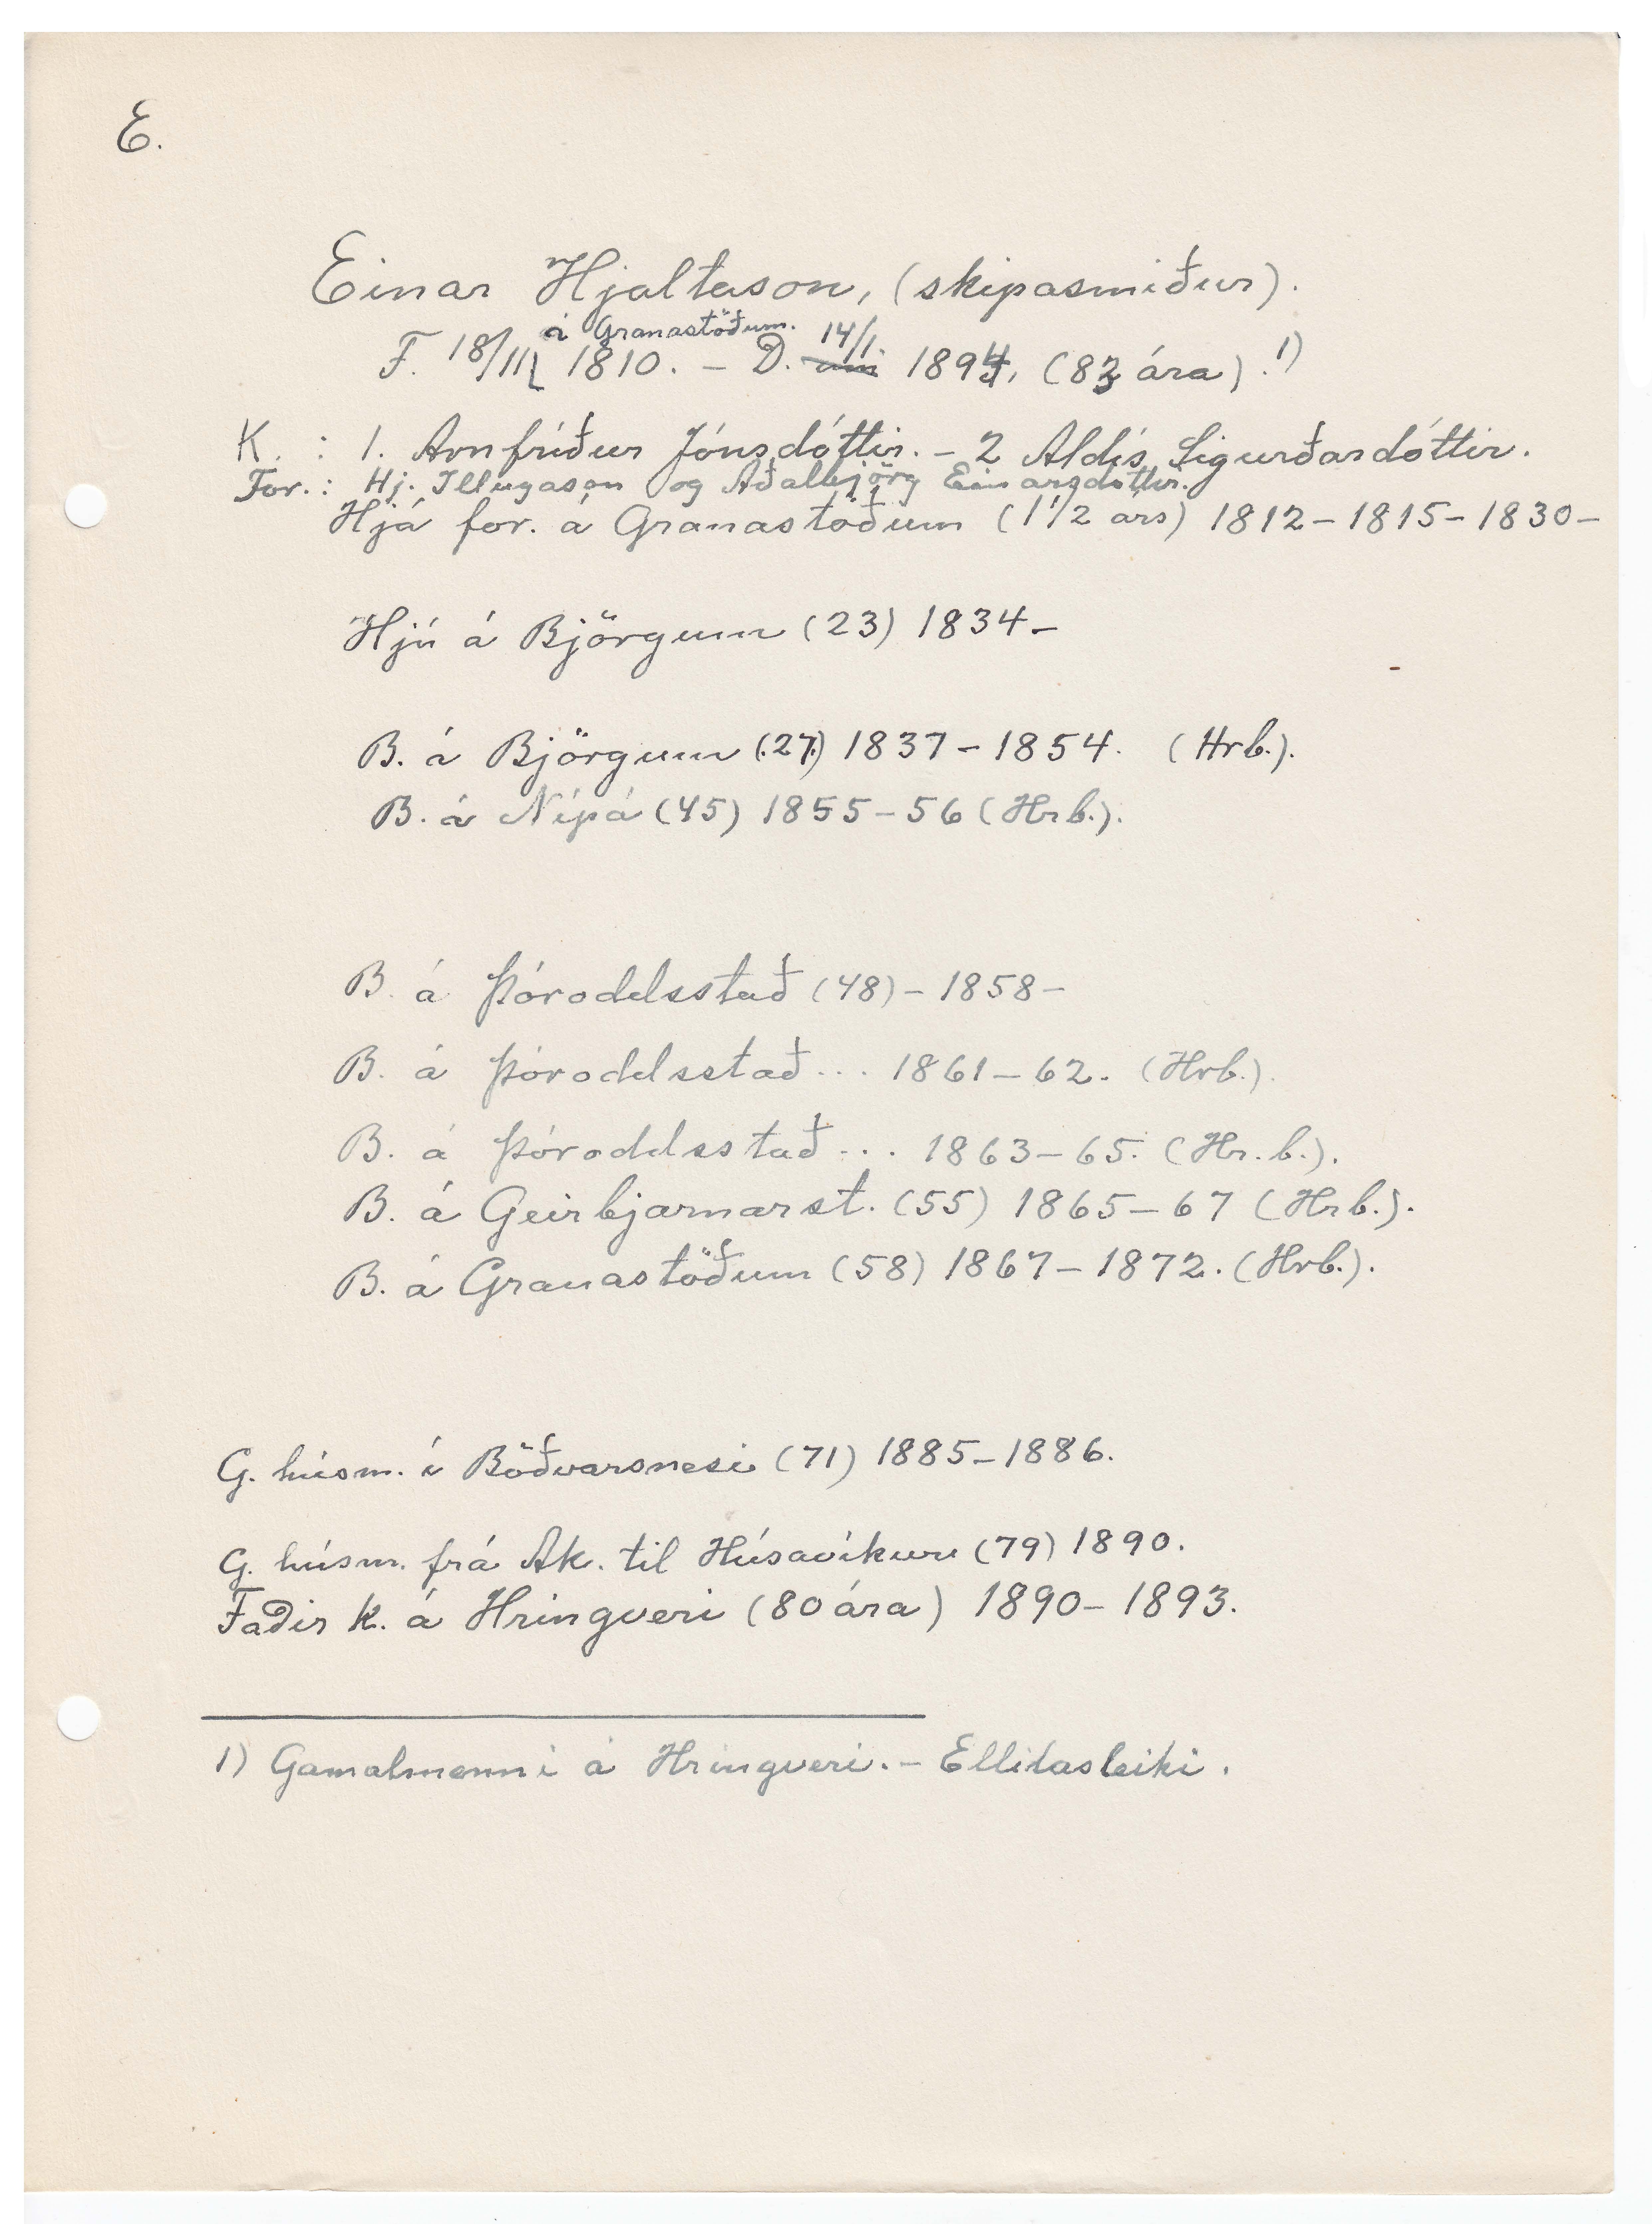 E.
Einar Hjaltason, (skipasmiður).
á Granastöðum. 14/1
F. 18/11 1810. – D. 1894, (83 ára).1)
K. : 1. Arnfríður Jónsdóttir. – 2 Aldís Sigurðardóttir.
For.: Hj. Illugason og Aðalbjörg Einarsdóttir.
Hjá for. á Granastöðum (1 1/2 árs) 1812 – 1815 – 1830 –
Hjú á Björgum (23) 1834 –
B. á Björgum (27) 1837 – 1854. (Hrb.).
B. á Nípá (45) 1855 – 56 (Hrb.).
B. á Þóroddsstað (48) – 1858 –
B. á Þóroddsstað ... 1861 – 62. (Hrb.).
B. á Þóroddsstað ... 1863 – 65. (Hr. b.).
B. á Geirbjarnarst. (55) 1865 – 67 (Hrb.).
B. á Granastöðum (58) 1867 – 1872. (Hrb.).
G. húsm. í Böðvarsnesi (71) 1885 – 1886.
G. húsm. frá Ak. til Húsavíkur (79) 1890.
Faðir k. á Hringveri (80 ára) 1890 – 1893.
1) Gamalmenni á Hringveri. – Ellilasleiki.